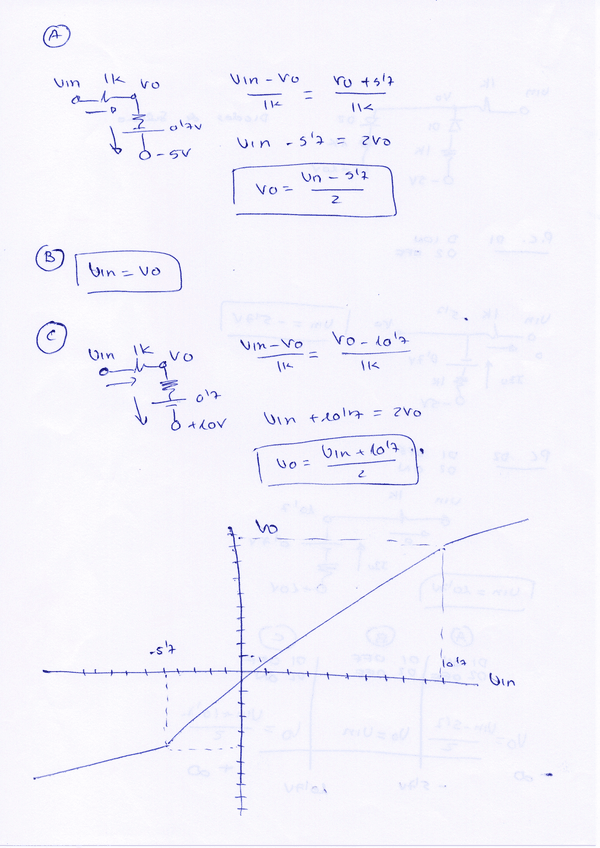 A
Vin 1K Vo
0'7V
-5V
Vin - Vo / 1K = Vo + 5'7 / 1K
Vin - 5'7 = 2Vo
Vo = Vin - 5'7 / 2
B
Vin = Vo
C
Vin 1K Vo
0'7
+10V
Vin - Vo / 1K = Vo - 10'7 / 1K
Vin + 10'7 = 2Vo
Vo = Vin + 10'7 / 2
Vo
-5'7
10'7
Vin